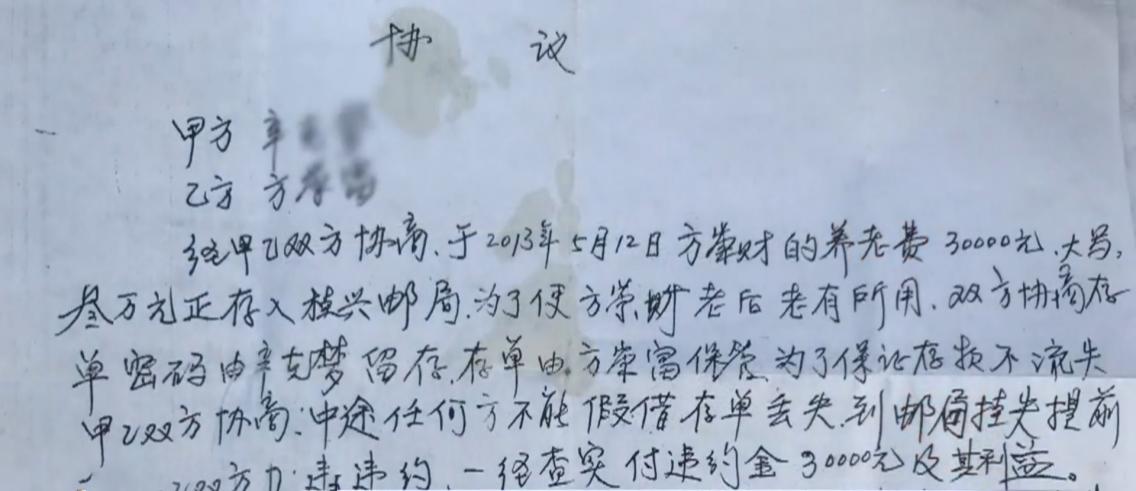 协 议
甲方 辛
乙方 方
经甲乙双方协商、于2013年5月12日方荣财的养老费30000元、大写,
叁万元正存入核兴邮局.为了使方荣财老后老有所用、双方协商存
单密码由辛克梦留存、存单由.方荣富保管.为了保证存款不流失
甲乙双方协商:中途任何方不能假借存单丢失到邮局挂失提前
双方 违约、一经查实付违约金30000元及其利益。